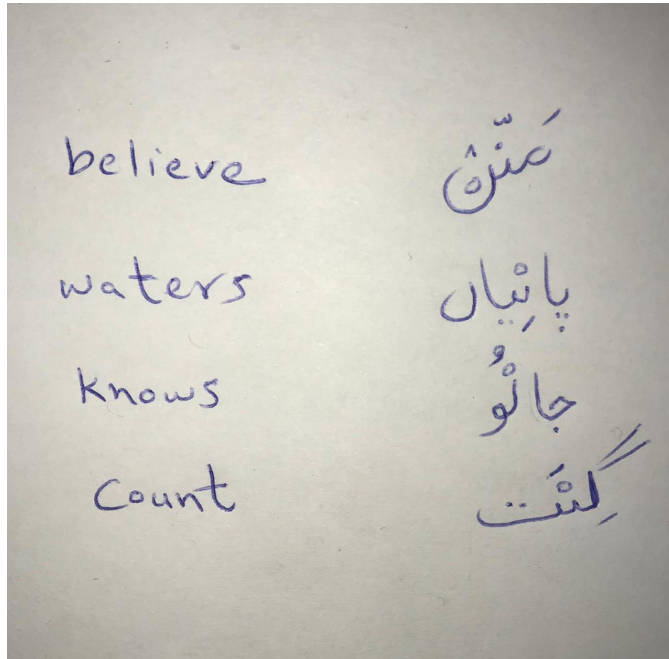 believe مَنّݨ
waters پاݨِیاں
knows جاݨُو
count گِݨَت